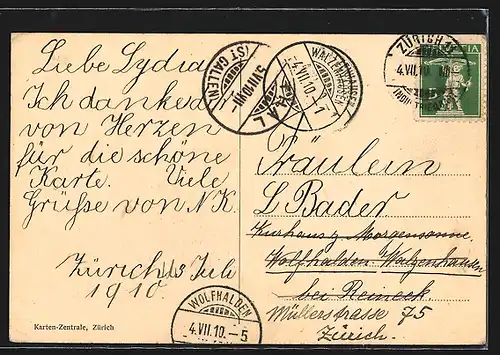 Liebe Lydia
Ich danke
von Herzen
für die schöne
Karte. Viele
Grüsse von N.K.
Zürich 3 Juli
1910.
Karten-Zentrale, Zürich
ST. GALLEN
5.VII.10.VII-
WALZENHAUSEN
4.VII.10.-7
ZÜRICH
4.VII.10.
HELVETIA
Fräulein
L. Bader
Kurhaus z. Morgensonne
Wolfhalden-Walzenhausen
bei Reineck.
Müllerstrasse 75
Zürich.
WOLFHALDEN
4.VII.10.-5